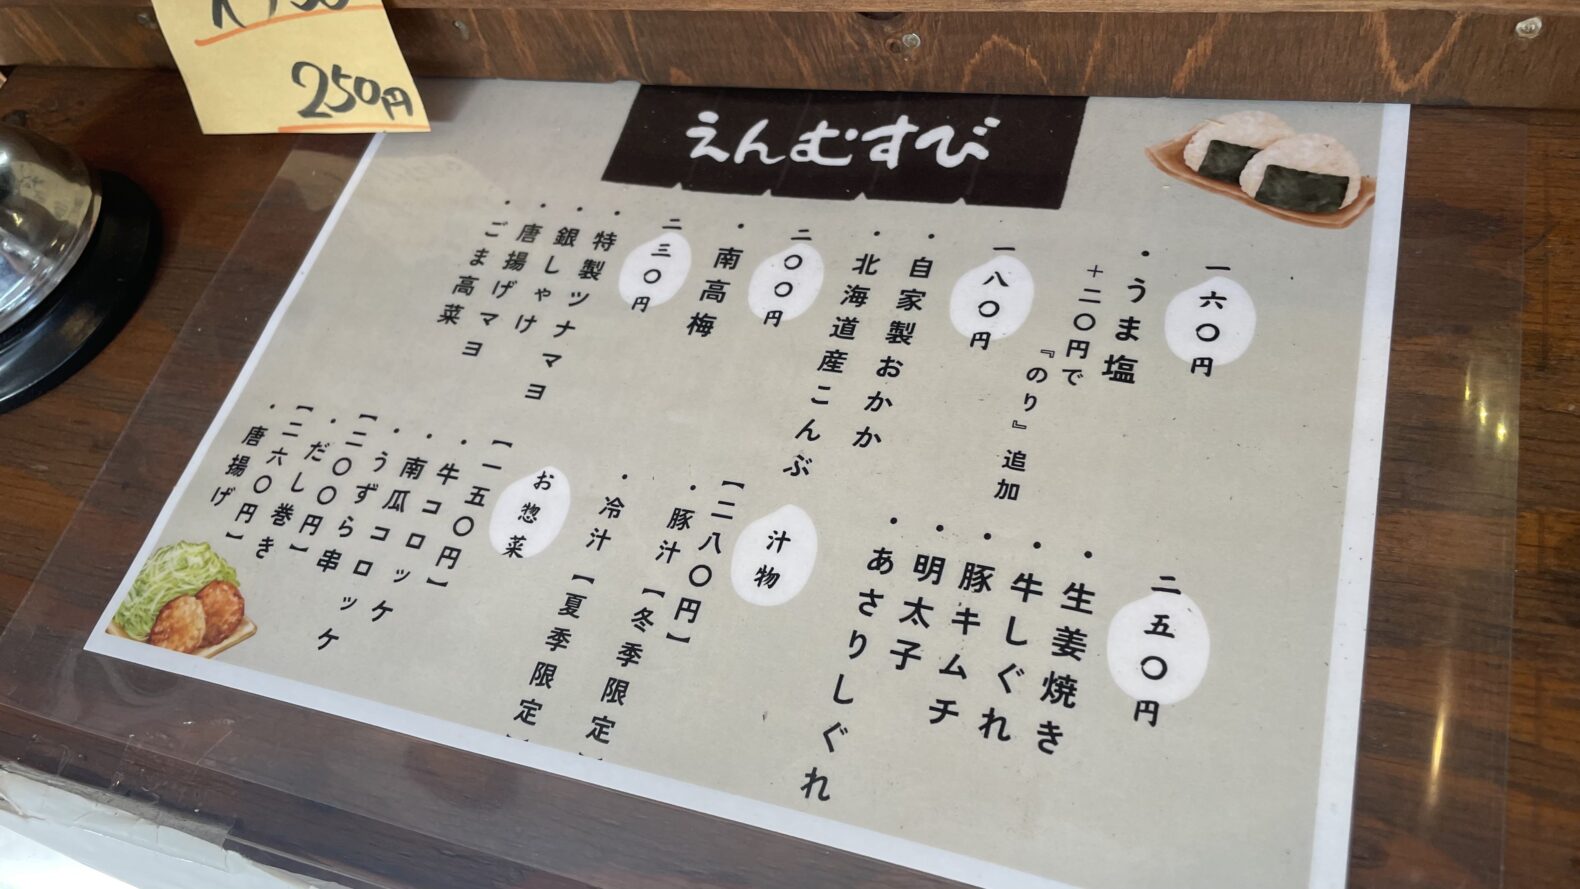 250円
えんむすび
一六〇円
・うま塩
＋二〇円で
『のり』追加
一八〇円
・自家製おかか
・北海道産こんぶ
二〇〇円
・南高梅
二三〇円
・特製ツナマヨ
・銀しゃけ
・唐揚げマヨ
・ごま高菜
二五〇円
・生姜焼き
・牛しぐれ
・豚キムチ
・明太子
・あさりしぐれ
汁物
【二八〇円】
・豚汁【冬季限定】
・冷汁【夏季限定】
お惣菜
【一五〇円】
・牛コロッケ
・南瓜コロッケ
・うずら串
【二〇〇円】
・だし巻き
【二六〇円】
・唐揚げ